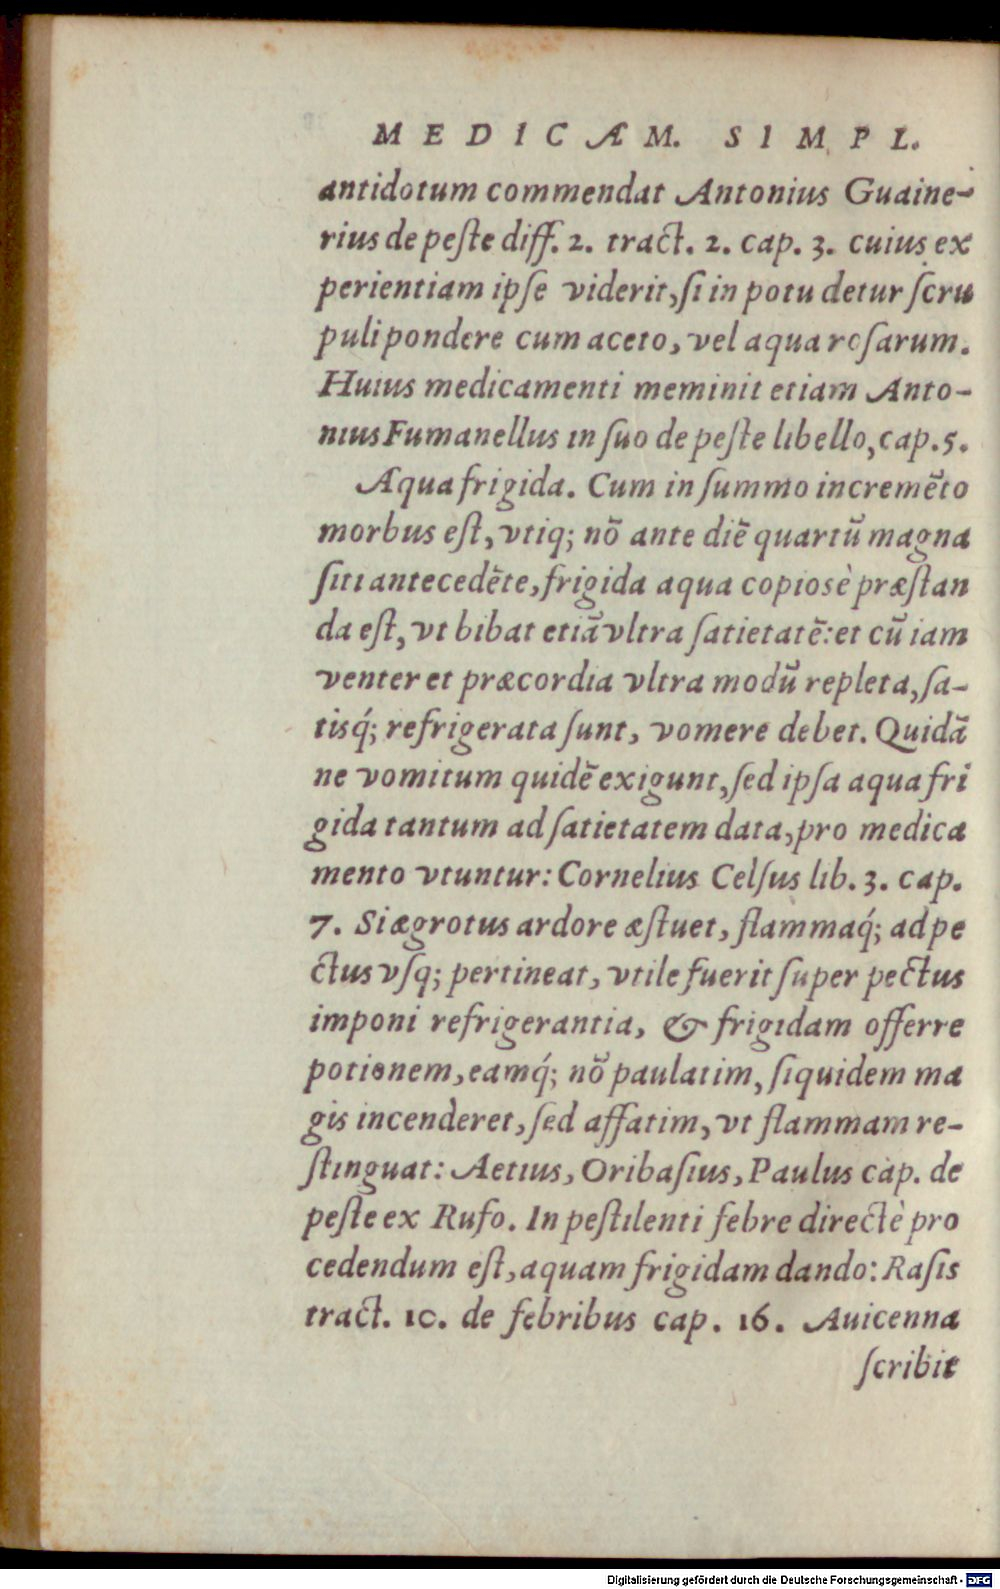 MEDICÆM. SIMPL.
antidotum commendat Antonius Guaine-
rius de peſte diff. 2. tract. 2. cap. 3. cuius ex
perientiam ipſe viderit, ſi in potu detur ſcru
puli pondere cum aceto, vel aqua roſarum.
Huius medicamenti meminit etiam Anto-
nius Fumanellus in ſuo de peſte libello, cap. 5.
Aqua frigida. Cum in ſummo incremẽto
morbus eſt, vtiq; nõ ante diẽ quartũ magna
ſiti antecedẽte, frigida aqua copiosè præſtan
da eſt, vt bibat etiã vltra ſatietatẽ: et cũ iam
venter et præcordia vltra modũ repleta, ſa-
tisq́; refrigerata ſunt, vomere debet. Quidã
ne vomitum quidẽ exigunt, ſed ipſa aqua fri
gida tantum ad ſatietatem data, pro medica
mento vtuntur: Cornelius Celſus lib. 3. cap.
7. Si ægrotus ardore æſtuet, flammaq́; ad pe
ctus vſq; pertineat, vtile fuerit ſuper pectus
imponi refrigerantia, & frigidam offerre
potionem, eamq́; nõ paulatim, ſiquidem ma
gis incenderet, ſed affatim, vt flammam re-
ſtinguat: Aetius, Oribaſius, Paulus cap. de
peſte ex Rufo. In peſtilenti febre directè pro
cedendum eſt, aquam frigidam dando: Raſis
tract. 10. de febribus cap. 16. Auicenna
ſcribit
Digitalisierung gefördert durch die Deutsche Forschungsgemeinschaft - DFG